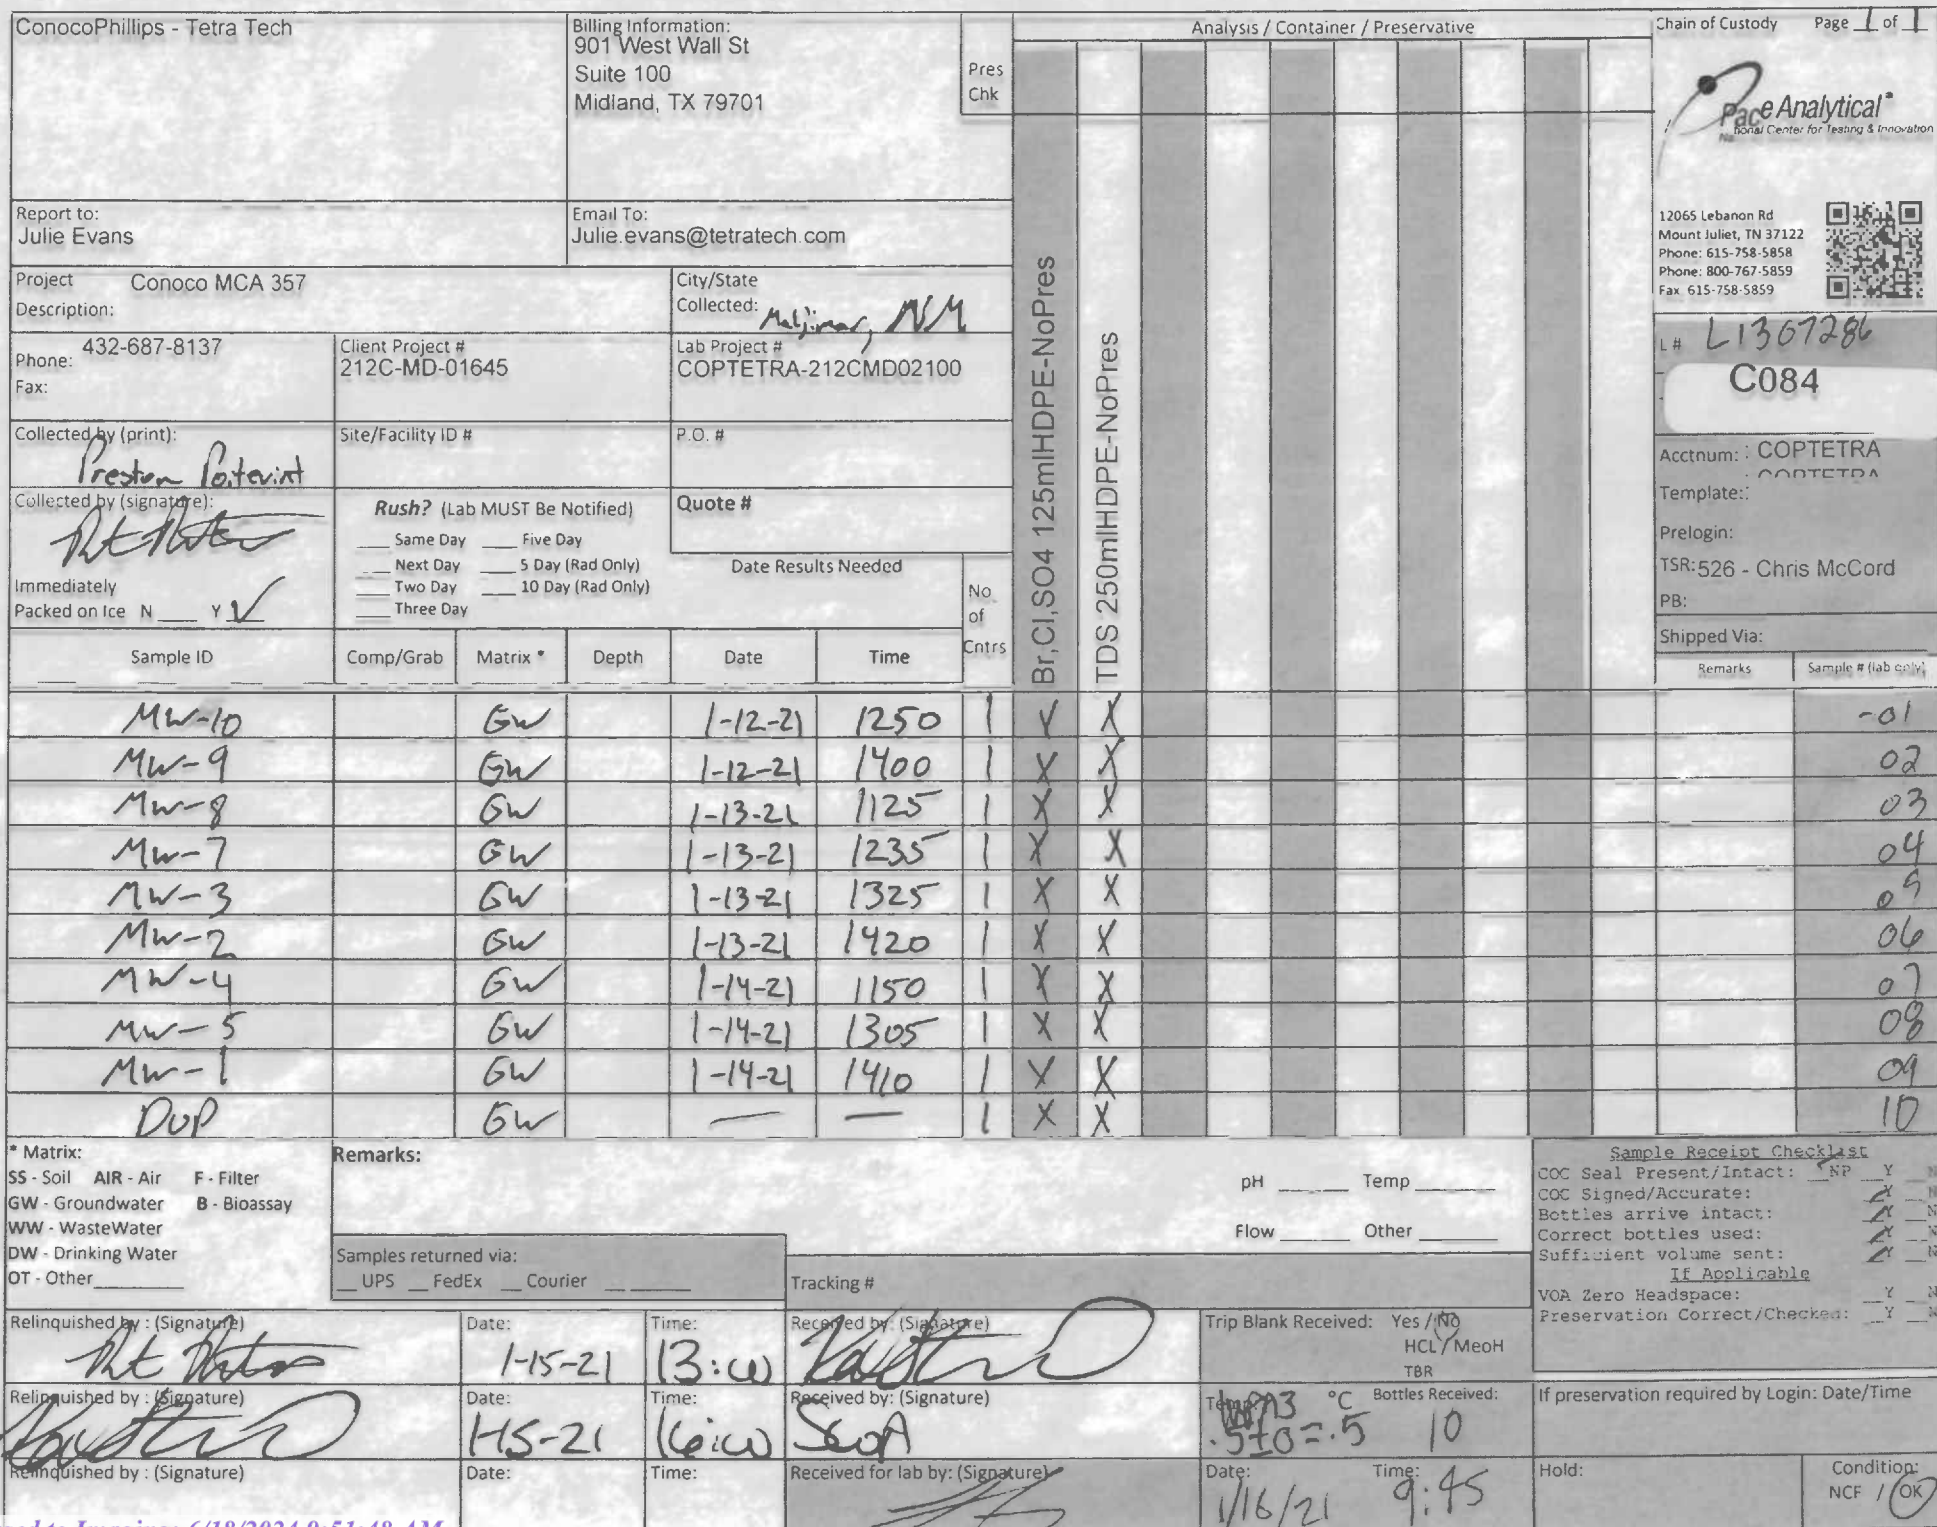 ConocoPhillips - Tetra Tech
Billing Information:
901 West Wall St
Suite 100
Midland, TX 79701
Pres
Chk
Analysis / Container / Preservative
Chain of Custody Page 1 of 1
Pace Analytical
National Center for Testing & Innovation
12065 Lebanon Rd
Mount Juliet, TN 37122
Phone: 615-758-5858
Phone: 800-767-5859
Fax 615-758-5859
Report to:
Julie Evans
Email To:
Julie.evans@tetratech.com
Project Description: Conoco MCA 357
City/State
Collected: Maljimar, NM
Phone: 432-687-8137
Fax:
Client Project #
212C-MD-01645
Lab Project #
COPTETRA-212CMD02100
L# L1307286
C084
Collected by (print):
Preston Poitevint
Site/Facility ID #
P.O. #
Acctnum: COPTETRA
COPTETRA
Template:
Prelogin:
TSR: 526 - Chris McCord
PB:
Shipped Via:
Collected by (signature):
Rush? (Lab MUST Be Notified)
Same Day Five Day
Next Day 5 Day (Rad Only)
Two Day 10 Day (Rad Only)
Three Day
Quote #
Date Results Needed
Immediately
Packed on Ice N Y ✓
No.
of
Cntrs
Br,Cl,SO4 125mlHDPE-NoPres
TDS 250mlHDPE-NoPres
Sample ID Comp/Grab Matrix * Depth Date Time Remarks Sample # (lab only)
MW-10 GW 1-12-21 1250 1 X X -01
MW-9 GW 1-12-21 1400 1 X X 02
MW-8 GW 1-13-21 1125 1 X X 03
MW-7 GW 1-13-21 1235 1 X X 04
MW-3 GW 1-13-21 1325 1 X X 05
MW-2 GW 1-13-21 1420 1 X X 06
MW-4 GW 1-14-21 1150 1 X X 07
MW-5 GW 1-14-21 1305 1 X X 08
MW-1 GW 1-14-21 1410 1 X X 09
DUP GW — — 1 X X 10
* Matrix:
SS - Soil AIR - Air F - Filter
GW - Groundwater B - Bioassay
WW - WasteWater
DW - Drinking Water
OT - Other
Remarks:
pH Temp
Flow Other
Samples returned via:
UPS FedEx Courier
Tracking #
Sample Receipt Checklist
COC Seal Present/Intact: NP Y N
COC Signed/Accurate: Y N
Bottles arrive intact: Y N
Correct bottles used: Y N
Sufficient volume sent: Y N
If Applicable
VOA Zero Headspace: Y N
Preservation Correct/Checked: Y N
Relinquished by : (Signature)
Date: 1-15-21
Time: 13:00
Received by: (Signature)
Trip Blank Received: Yes / No
HCL / MeoH
TBR
Relinquished by : (Signature)
Date: 1-15-21
Time: 16:00
Received by: (Signature)
°C
.5±0=.5
Bottles Received:
10
If preservation required by Login: Date/Time
Relinquished by : (Signature)
Date:
Time:
Received for lab by: (Signature)
Date: 1/16/21
Time: 9:45
Hold:
Condition:
NCF / OK
6/18/2024 9:51:48 AM